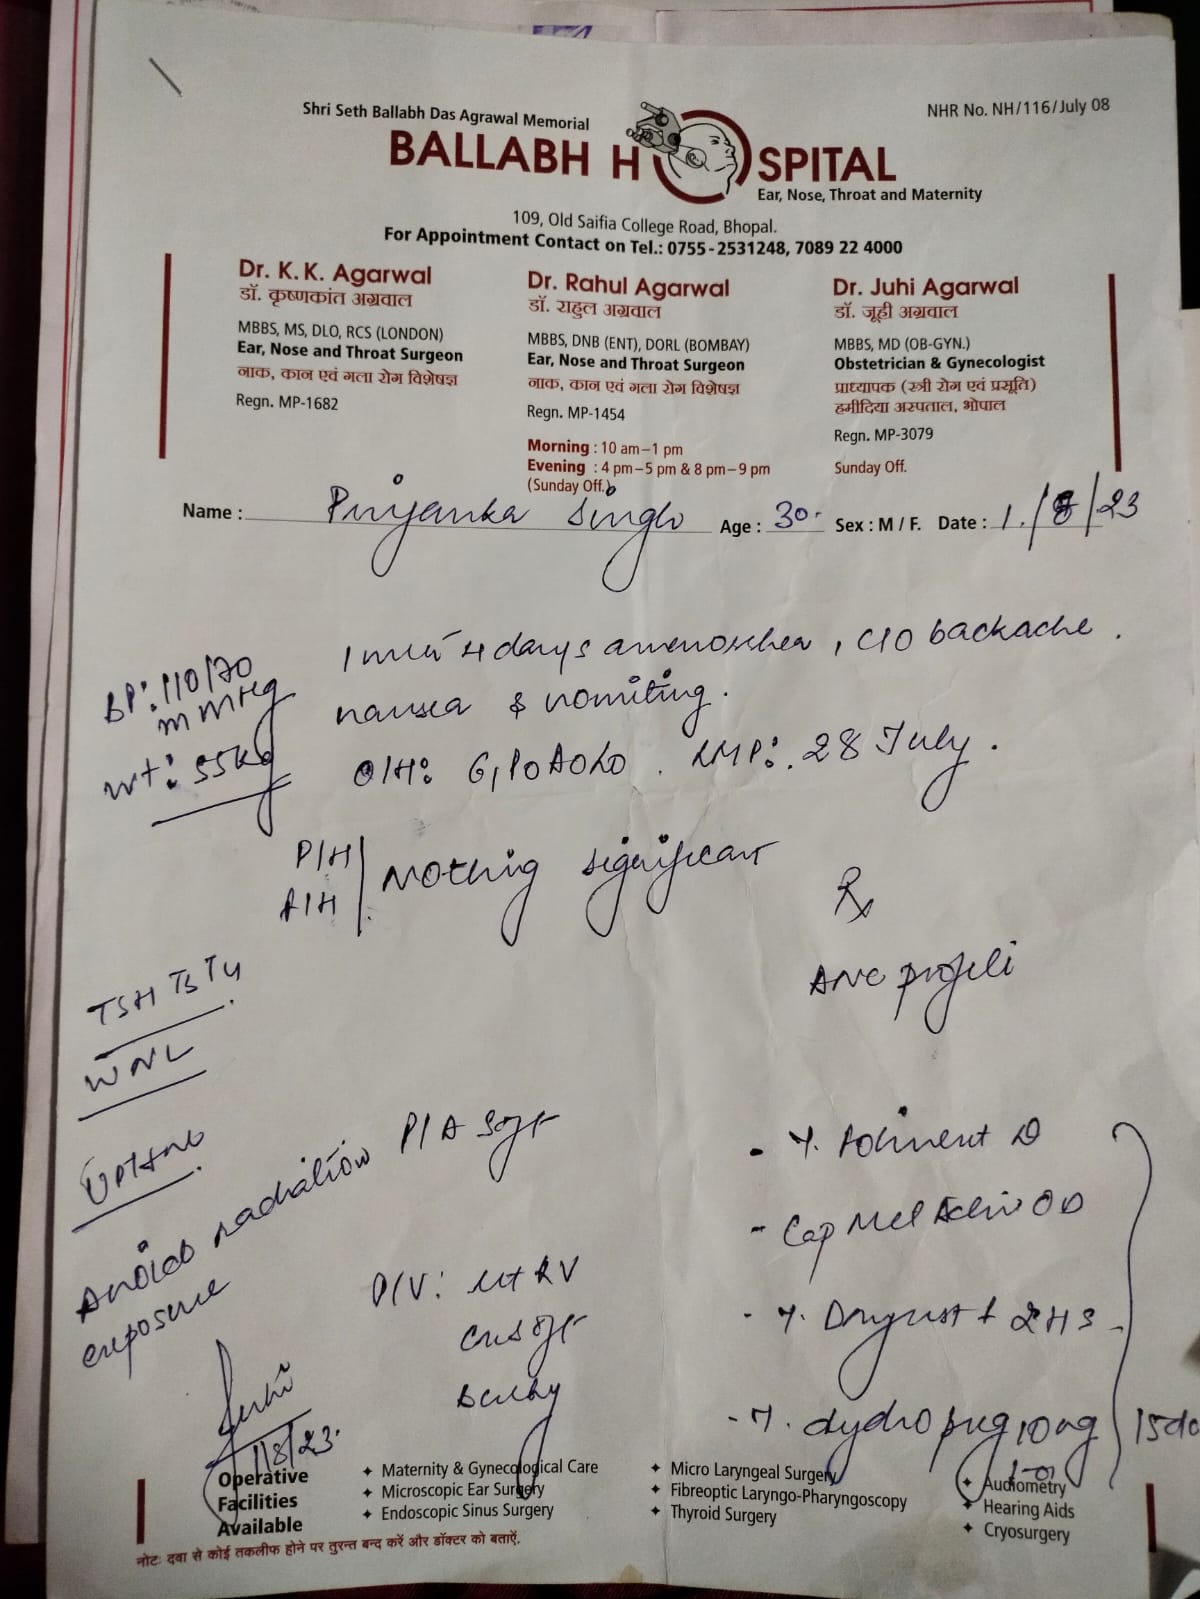 Shri Seth Ballabh Das Agrawal Memorial
NHR No. NH/116/July 08
BALLABH H SPITAL
Ear, Nose, Throat and Maternity
109, Old Saifia College Road, Bhopal.
For Appointment Contact on Tel.: 0755-2531248, 7089 22 4000
Dr. K. K. Agarwal
डॉ. कृष्णकांत अग्रवाल
MBBS, MS, DLO, RCS (LONDON)
Ear, Nose and Throat Surgeon
नाक, कान एवं गला रोग विशेषज्ञ
Regn. MP-1682
Dr. Rahul Agarwal
डॉ. राहुल अग्रवाल
MBBS, DNB (ENT), DORL (BOMBAY)
Ear, Nose and Throat Surgeon
नाक, कान एवं गला रोग विशेषज्ञ
Regn. MP-1454
Morning : 10 am–1 pm
Evening : 4 pm–5 pm & 8 pm–9 pm
(Sunday Off.)
Dr. Juhi Agarwal
डॉ. जूही अग्रवाल
MBBS, MD (OB-GYN.)
Obstetrician & Gynecologist
प्राध्यापक (स्त्री रोग एवं प्रसूति)
हमीदिया अस्पताल, भोपाल
Regn. MP-3079
Sunday Off.
Name : Priyanka Singh Age : 30. Sex : M / F. Date : 1/8/23
BP: 110/70
mmHg
wt: 55kg
4 days amenorrhea, C/O backache.
nausea & vomiting.
O/H: G1P0A0L0. LMP: 28 July.
P/H
Nothing significant
Rx
ANC profile
TSH T3 T4
WNL
P/A soft
Avoid radiation
exposure
P/V: ut RV
OD
2 HS
- T. dydropreg 10mg
1/8/23.
Operative
Facilities
Available
✦ Maternity & Gynecological Care
✦ Microscopic Ear Surgery
✦ Endoscopic Sinus Surgery
✦ Micro Laryngeal Surgery
✦ Fibreoptic Laryngo-Pharyngoscopy
✦ Thyroid Surgery
✦ Audiometry
✦ Hearing Aids
✦ Cryosurgery
नोट: दवा से कोई तकलीफ होने पर तुरन्त बन्द करें और डॉक्टर को बताऐं.